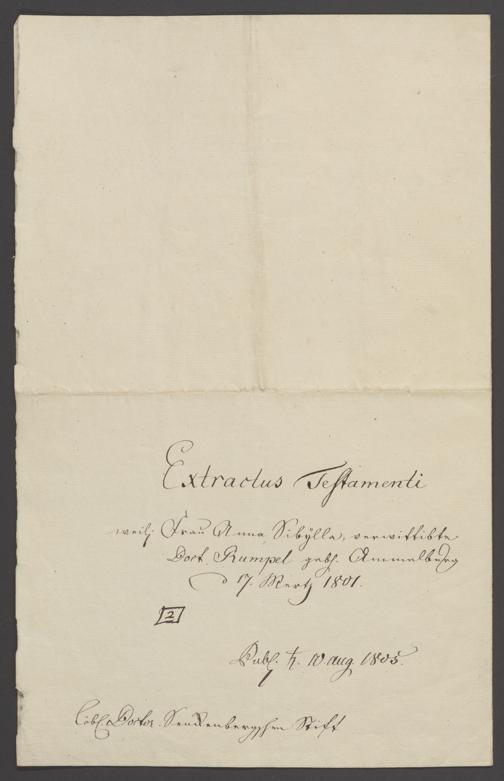 Extractus Testamenti
weil. Frau Anna Sibÿlla, verwittibte
Doct. Rumpel gebh. Ammelburg
d 7. Mertz 1801.
2
Publ. ♄. 10 aug 1805.
Löbl. Doctor Senckenbergschen Stift